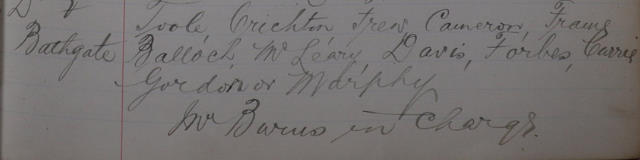 Toole, Crichton Frew, Cameron, Frame
Bathgate Balloch, McLeary, Davis, Forbes, Currie
Gordon or Murphy
Mr Burns in Charge.